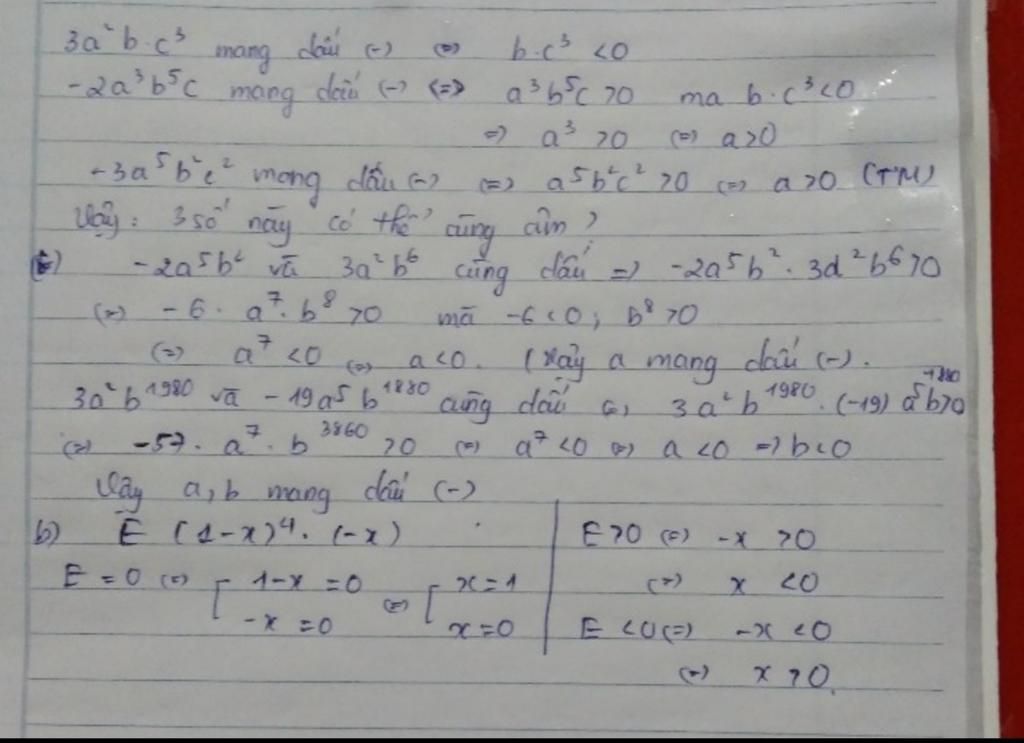 3a²b.c³ mang dấu (-) (=) b.c³ <0
-2a³b⁵c mang dấu (-) (=> a³b⁵c >0 ma b.c³<0
=> a³ >0 (=) a>0
-3a⁵b²c² mang dấu (-) (=> a⁵b²c² >0 (=) a>0 (TM)
Vậy: 3 số này có thể cùng âm
-2a⁵b² và 3a²b⁶ cùng dấu => -2a⁵b².3a²b⁶>0
(=) -6.a⁷.b⁸ >0 mà -6<0; b⁸>0
(=) a⁷ <0 (=) a<0. (Vậy a mang dấu (-).
3a²b¹⁹⁸⁰ và -19a⁵b¹⁸⁸⁰ cùng dấu (=) 3a²b¹⁹⁸⁰.(-19)a⁵b¹⁸⁸⁰>0
(=) -57.a⁷.b³⁸⁶⁰ >0 (=) a⁷<0 (=) a<0 => b<0
Vậy a, b mang dấu (-)
b) E (1-x)⁴.(-x)
E = 0 (=) [ 1-x =0 (=) [ x=1
-x =0 x=0
E>0 (=) -x >0
(=) x <0
E <0 (=) -x <0
(=) x >0.